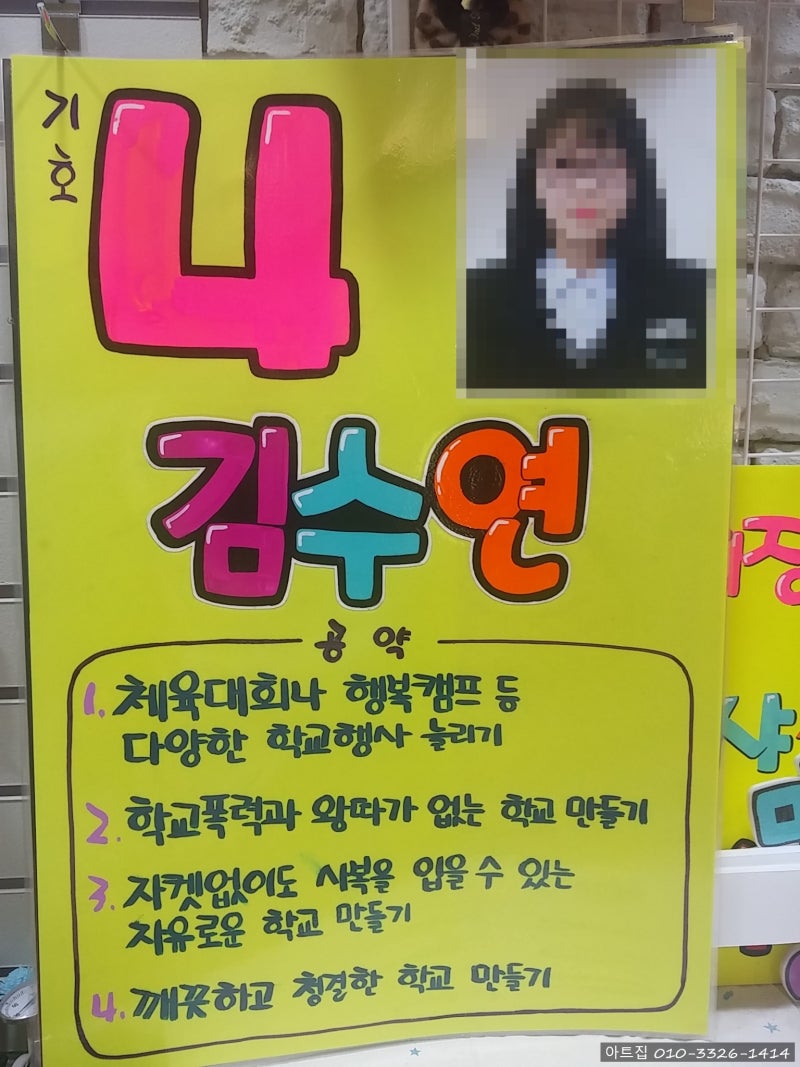 기호
4
김수연
공약
1. 체육대회나 행복캠프 등
다양한 학교행사 늘리기
2. 학교폭력과 왕따가 없는 학교 만들기
3. 자켓없이도 사복을 입을 수 있는
자유로운 학교 만들기
4. 깨끗하고 청결한 학교 만들기
아트집 010-3326-1414